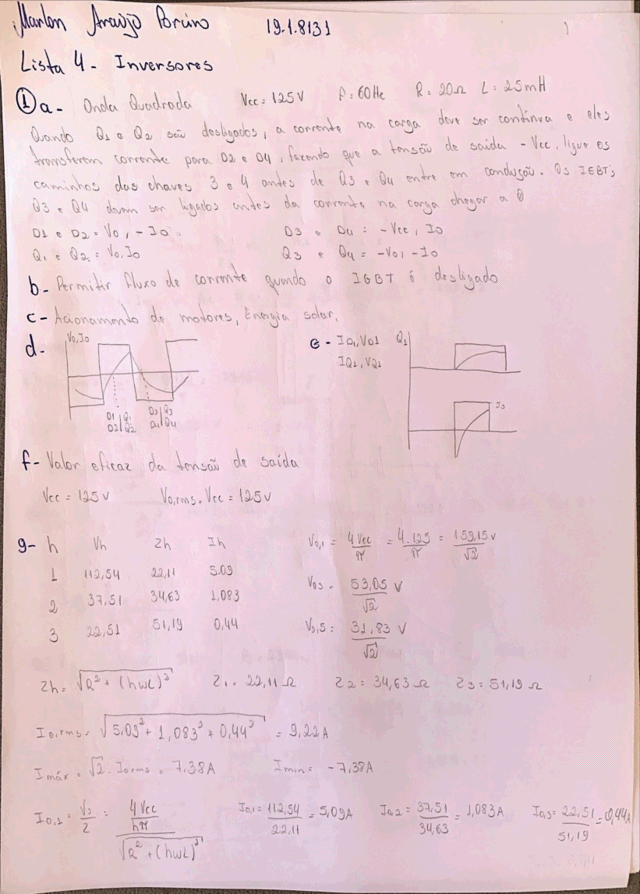 Marlon Araújo Bruno 19.1.8131
1
Lista 4 - Inversores
① a- Onda Quadrada Vcc = 125V f = 60Hz R = 20Ω L = 25mH
Quando Q1 e Q2 são desligados, a corrente na carga deve ser contínua e eles
transferem corrente para D2 e D4, fazendo que a tensão de saida -Vcc, ligue os
caminhos das chaves 3 e 4 antes de Q3 e Q4 entre em condução. Os IGBTs
Q3 e Q4 devem ser ligados antes da corrente na carga chegar a 0
D1 e D2 = Vo, -Io D3 e D4 : -Vcc, Io
Q1 e Q2 = Vo, Io Q3 e Q4 = -Vo, -Io
b- Permitir fluxo de corrente quando o IGBT é desligado
c- Acionamento de motores, Energia solar.
d- Vo, Io
D1 | Q1 D3 | Q3
D2 | Q2 D4 | Q4
e- IQ1, VQ1 Q1
IQ1, VQ1
f- Valor eficaz da tensão de saída
Vcc = 125V Vo,rms = Vcc = 125V
g- h Vh Zh Ih
1 112,54 22,11 5.09
2 37,51 34,63 1,083
3 22,51 51,19 0,44
Vo,1 = 4Vcc/π = 4.125/π = 159,15V/√2
Vo3 = 53,05/√2 V
Vo,5 = 31,83/√2 V
Zh = √R² + (hωL)² Z1 = 22,11 Ω Z2 = 34,63 Ω Z3 = 51,19 Ω
Io,rms = √5.09² + 1,083² + 0,44² = 9,22A
Imáx = √2 . Io,rms = 7,38A Imin = -7,38A
Io,1 = V1/Z = 4Vcc/hπ / √R² + (hωL)² Io,1 = 112,54/22,11 = 5,09A Io,2 = 37,51/34,63 = 1,083A Io,3 = 22,51/51,19 = 0,44A